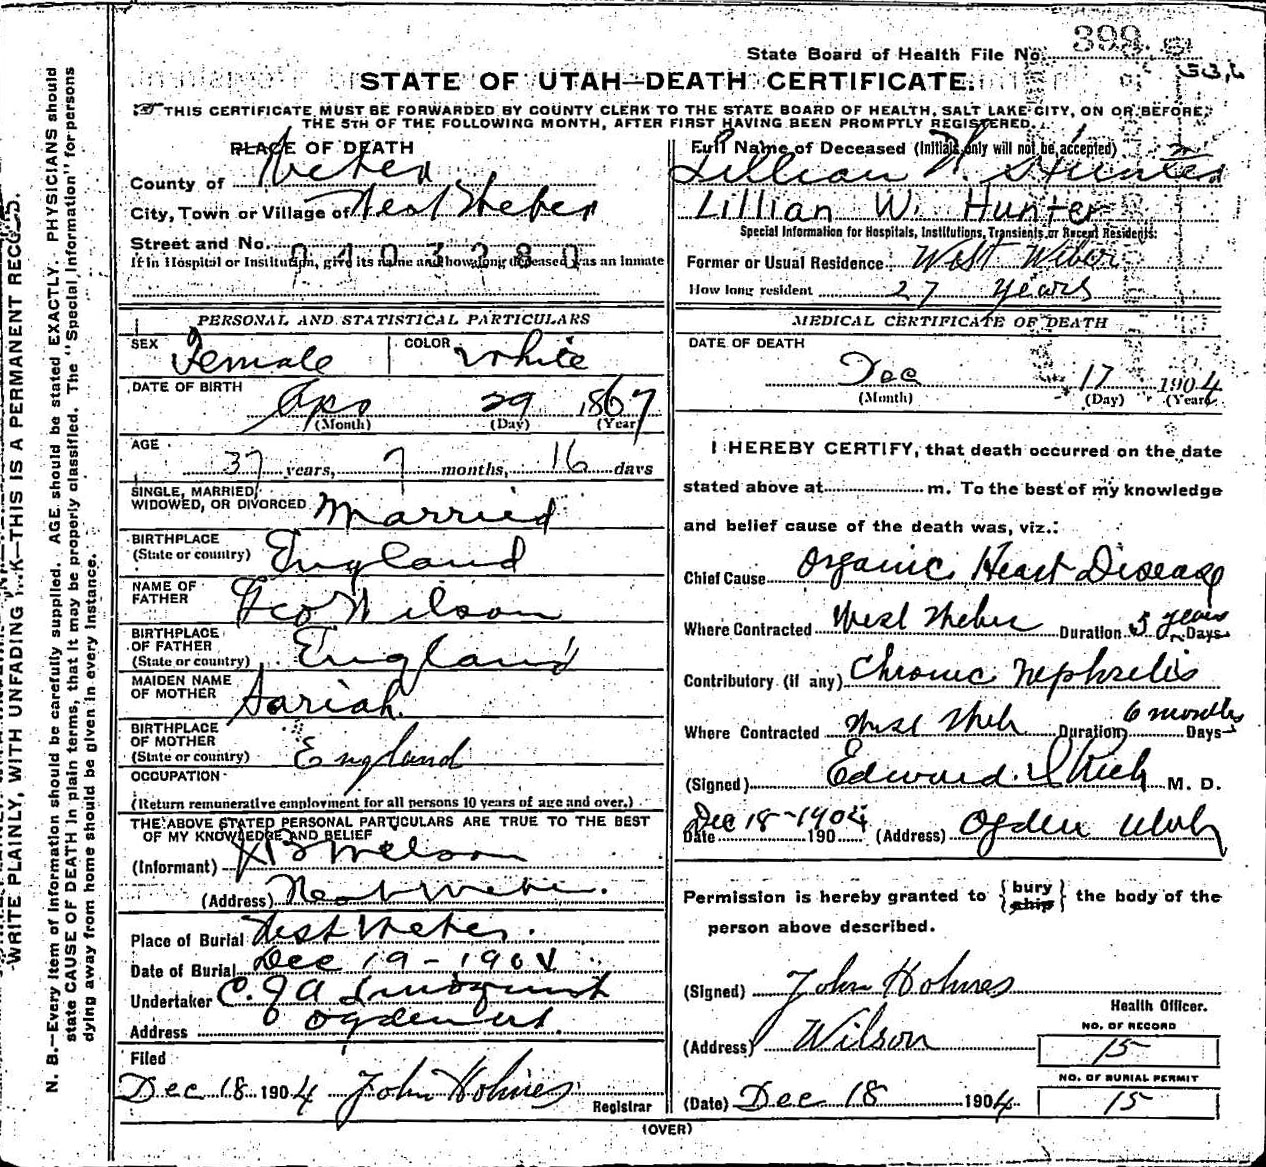 State Board of Health File No. 399.
53,6
STATE OF UTAH—DEATH CERTIFICATE.
THIS CERTIFICATE MUST BE FORWARDED BY COUNTY CLERK TO THE STATE BOARD OF HEALTH, SALT LAKE CITY, ON OR BEFORE,
THE 5TH OF THE FOLLOWING MONTH, AFTER FIRST HAVING BEEN PROMPTLY REGISTERED.
WRITE PLAINLY, WITH UNFADING INK—THIS IS A PERMANENT RECORD.
N. B.—Every item of information should be carefully supplied. AGE should be stated EXACTLY. PHYSICIANS should
state CAUSE OF DEATH in plain terms, that it may be properly classified. The "Special Information" for persons
dying away from home should be given in every instance.
PLACE OF DEATH
County of Weber
City, Town or Village of West Weber
Street and No.
0403280
If in Hospital or Institution, give its name and how long deceased was an inmate
PERSONAL AND STATISTICAL PARTICULARS
SEX Female COLOR White
DATE OF BIRTH Apr 29 1867
(Month) (Day) (Year)
AGE 37 years, 7 months, 16 days
SINGLE, MARRIED,
WIDOWED, OR DIVORCED Married
BIRTHPLACE
(State or country) England
NAME OF
FATHER Geo Wilson
BIRTHPLACE
OF FATHER
(State or country) England
MAIDEN NAME
OF MOTHER Sariah
BIRTHPLACE
OF MOTHER
(State or country) England
OCCUPATION
(Return remunerative employment for all persons 10 years of age and over.)
THE ABOVE STATED PERSONAL PARTICULARS ARE TRUE TO THE BEST
OF MY KNOWLEDGE AND BELIEF
(Informant) Wilson
(Address) West Weber.
Place of Burial West Weber.
Date of Burial Dec 19-1904
Undertaker C. J A Lindquist
Address Ogden ut.
Filed
Dec 18 1904 John Holmes
Registrar
Full Name of Deceased (Initials only will not be accepted)
Lillian W. Hunter
Lillian W. Hunter
Special Information for Hospitals, Institutions, Transients, or Recent Residents:
Former or Usual Residence West Weber
How long resident 27 years
MEDICAL CERTIFICATE OF DEATH
DATE OF DEATH
Dec 17 1904
(Month) (Day) (Year)
I HEREBY CERTIFY, that death occurred on the date
stated above at m. To the best of my knowledge
and belief cause of the death was, viz.:
Chief Cause Organic Heart Disease
Where Contracted West Weber Duration 5 years Days
Contributory (if any) Chronic Nephritis
Where Contracted West Web Duration 6 months Days
(Signed) Edward I Rich M. D.
Date Dec 18-1904 190 (Address) Ogden Utah
Permission is hereby granted to {bury ship} the body of the
person above described.
(Signed) John Holmes
Health Officer.
(Address) Wilson
NO. OF RECORD
15
NO. OF BURIAL PERMIT
(Date) Dec 18 1904 15
(OVER)